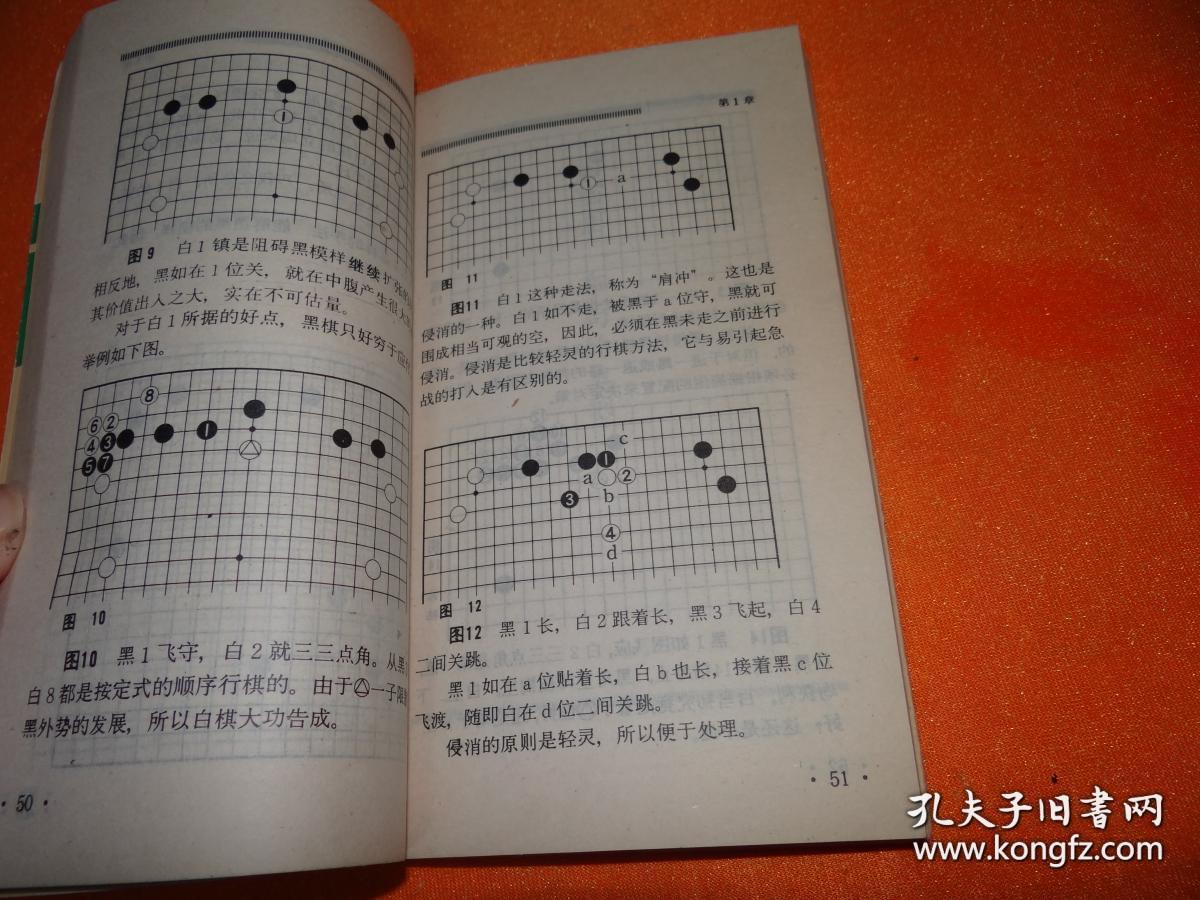 1
图9 白1镇是阻碍黑模样继续扩张的
相反地，黑如在1位关，就在中腹产生很大
其价值出入之大，实在不可估量。
对于白1所据的好点，黑棋只好穷于应付
举例如下图。
⑧
⑥②
④❸ ❶
❺❼
图 10
图10 黑1飞守，白2就三三点角。从黑
白8都是按定式的顺序行棋的。由于△一子限
黑外势的发展，所以白棋大功告成。
· 50 ·
第1章
① a
图 11
图11 白1这种走法，称为“肩冲”。这也是
侵消的一种。白1如不走，被黑于a位守，黑就可
围成相当可观的空，因此，必须在黑未走之前进行
侵消。侵消是比较轻灵的行棋方法，它与易引起急
战的打入是有区别的。
c
❶
a ②
❸ b
④
d
图 12
图12 黑1长，白2跟着长，黑3飞起，白4
二间关跳。
黑1如在a位贴着长，白b也长，接着黑c位
飞渡，随即白在d位二间关跳。
侵消的原则是轻灵，所以便于处理。
· 51 ·
孔夫子旧书网
www.kongfz.com